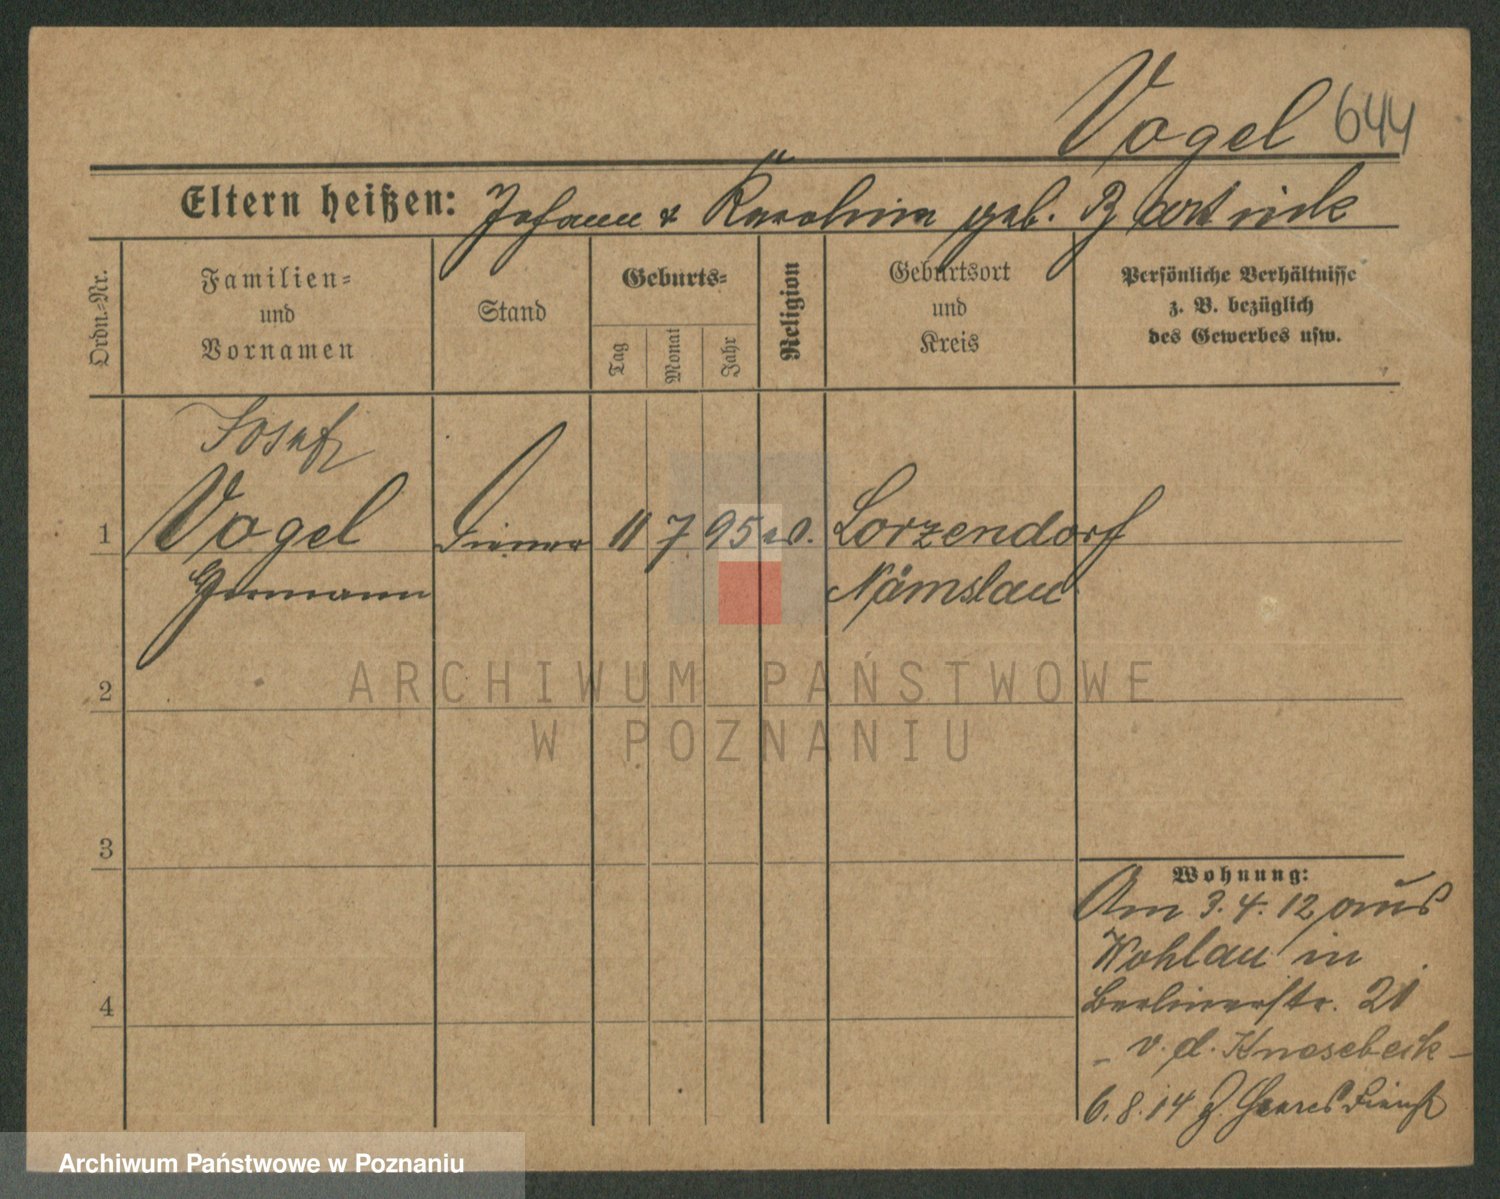 Vogel 644
Eltern heißen: Johann & Karoline geb. Bartnick
Ordn.-Nr.
Familien-
und
Vornamen
Stand
Geburts-
Tag
Monat
Jahr
Religion
Geburtsort
und
Kreis
Persönliche Verhältnisse
z. B. bezüglich
des Gewerbes usw.
Josef
1 Vogel Diener 11 7 95 ev. Lorzendorf
Hermann Nämslau
2
3
4
Wohnung:
Am 3. 4. 12 aus
Wohlau in
Berlinerstr. 21
- v. d. Knesebeck -
6. 8. 14 z. Heeresdienst
ARCHIWUM PAŃSTWOWE
W POZNANIU
Archiwum Państwowe w Poznaniu